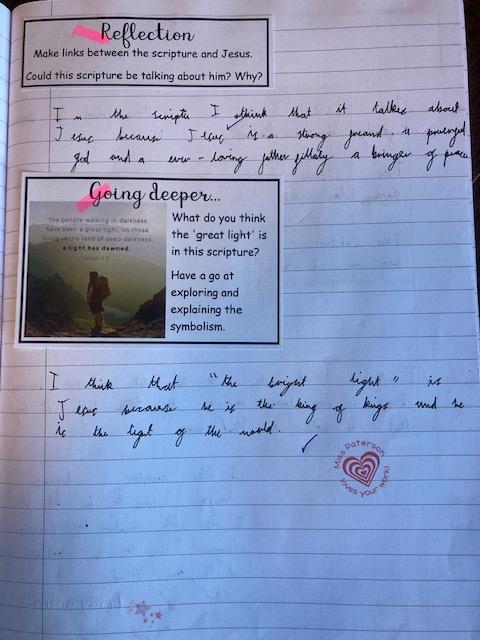 Reflection
Make links between the scripture and Jesus.
Could this scripture be talking about him? Why?
In the scripte I think that it talkes about
Jesus because Jesus is a strong
god and a ever-loving father a bringer of peace
Going deeper...
The people walking in darkness
have seen a great light; on those
living in the land of deep darkness
a light has dawned.
Isaiah 9:2
What do you think
the 'great light' is
in this scripture?
Have a go at
exploring and
explaining the
symbolism.
I think that "the bright light" is
Jesus because he is the king of kings and he
is the light of the world.
Miss Paterson
loves your work!